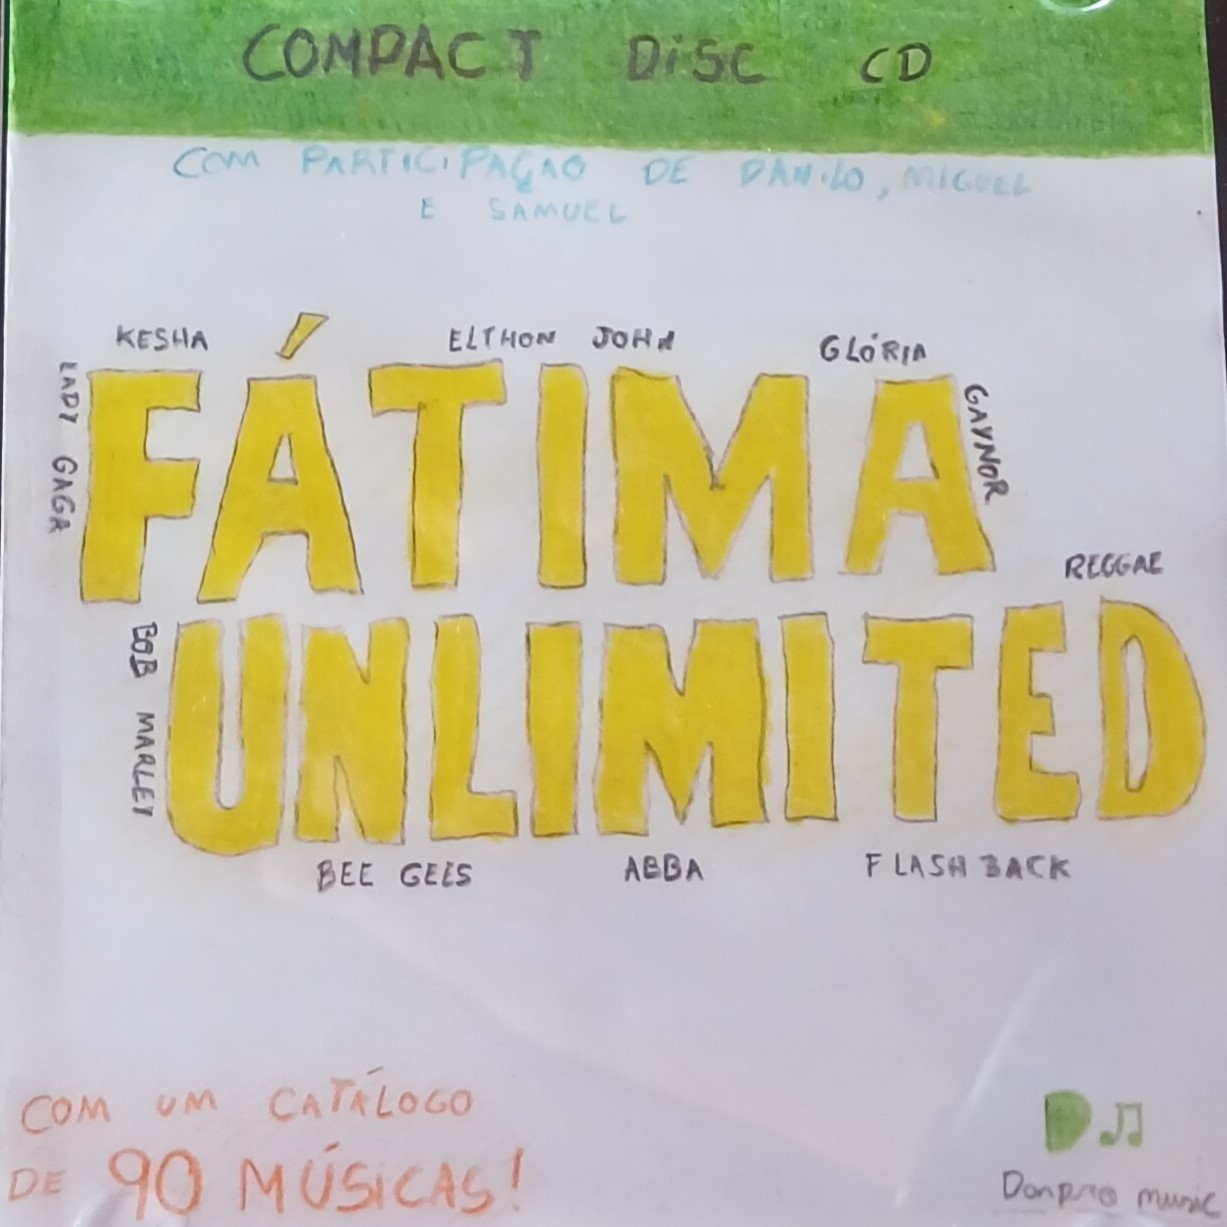 COMPACT DiSC CD
COM PARTICIPAÇAO DE DANILO, MIGUEL
E SAMUEL
KESHA
ELTHON JOHN
GLÓRIA
GAYNOR
LADY GAGA
FÁTIMA
REGGAE
BOB MARLEY
UNLIMITED
BEE GEES
ABBA
FLASH BACK
COM UM CATÁLOGO
DE 90 MÚSiCAS!
D♫
Donpro music